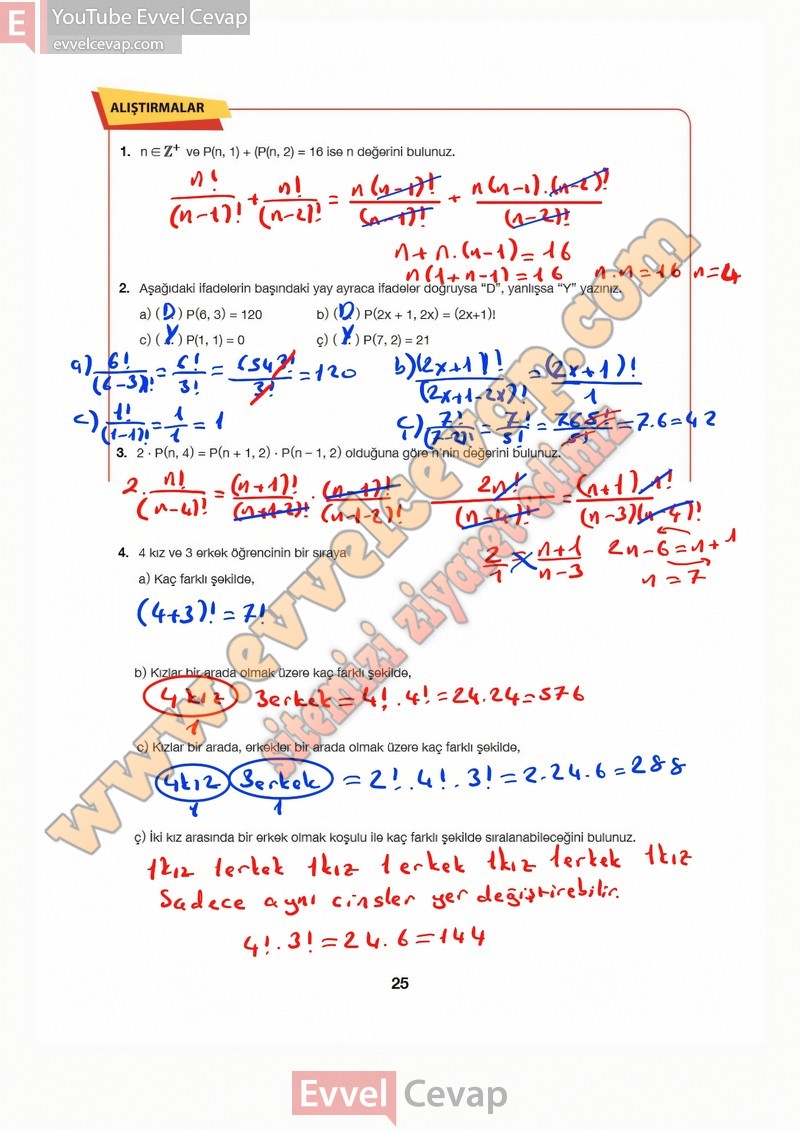 E YouTube Evvel Cevap
evvelcevap.com
ALIŞTIRMALAR
1. n ∈ Z⁺ ve P(n, 1) + (P(n, 2) = 16 ise n değerini bulunuz.
n!/(n-1)! + n!/(n-2)! = n(n-1)!/(n-1)! + n(n-1).(n-2)!/(n-2)!
n+n.(n-1)=16
n(1+n-1)=16 n.n=16 n=4
2. Aşağıdaki ifadelerin başındaki yay ayraca ifadeler doğruysa “D”, yanlışsa “Y” yazınız.
a) (D) P(6, 3) = 120 b) (D) P(2x + 1, 2x) = (2x+1)!
c) (Y) P(1, 1) = 0 ç) (Y) P(7, 2) = 21
a) 6!/(6-3)! = 6!/3! = 6543!/3! = 120 b) (2x+1)!/(2x+1-2x)! = (2x+1)!/1
c) 1!/(1-1)! = 1/1 = 1 ç) 7!/(7-2)! = 7!/5! = 765!/5! = 7.6=42
3. 2 · P(n, 4) = P(n + 1, 2) · P(n – 1, 2) olduğuna göre n’nin değerini bulunuz.
2. n!/(n-4)! = (n+1)!/(n+1-2)! . (n-1)!/(n-1-2)! 2n!/(n-4)! = (n+1) n!/(n-3)(n-4)!
2/1 = n+1/n-3 2n-6=n+1
n=7
4. 4 kız ve 3 erkek öğrencinin bir sıraya
a) Kaç farklı şekilde,
(4+3)!=7!
b) Kızlar bir arada olmak üzere kaç farklı şekilde,
4 kız 3erkek = 4!.4!=24.24=576
1
c) Kızlar bir arada, erkekler bir arada olmak üzere kaç farklı şekilde,
4kız 3erkek = 2!.4!.3!=2.24.6=288
1 1
ç) İki kız arasında bir erkek olmak koşulu ile kaç farklı şekilde sıralanabileceğini bulunuz.
1kız 1erkek 1kız 1 erkek 1kız 1erkek 1kız
Sadece aynı cinsler yer değiştirebilir.
4!.3!=24.6=144
25
www.evvelcevap.com
sitemizi ziyaret ediniz
Evvel Cevap